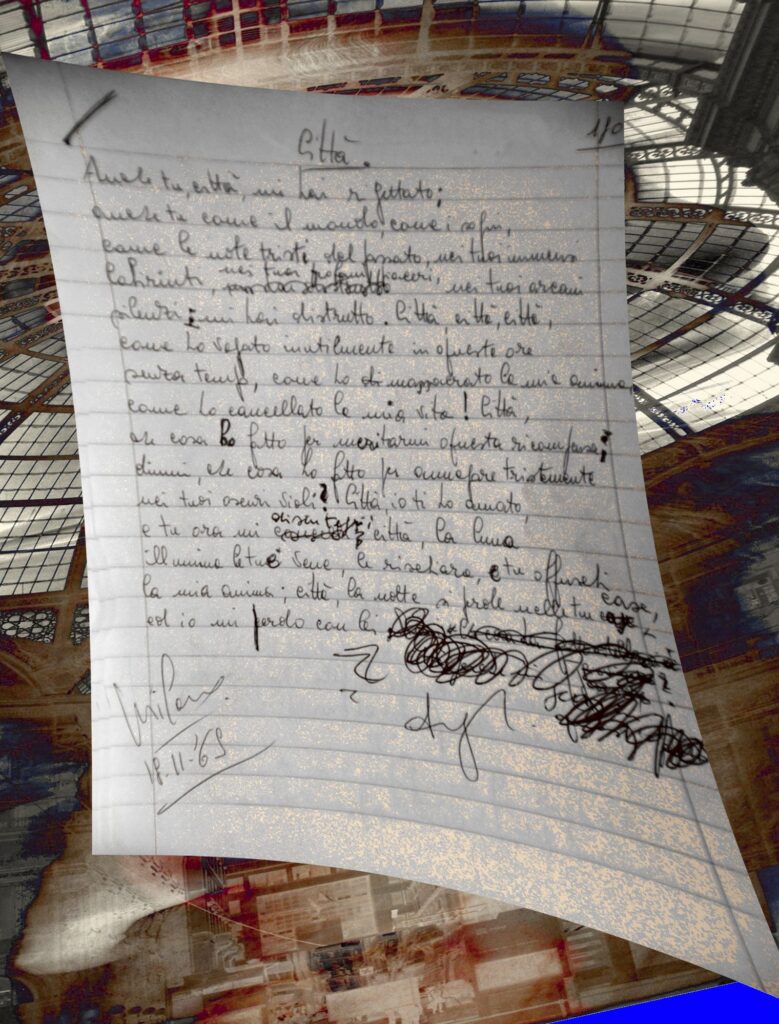 110
Città.
Anche tu, città, mi hai rifiutato;
anche tu come il mondo, come i sogni,
come le note tristi del passato, nei tuoi immensi
labirinti, nei tuoi profani piaceri, nei tuoi arcani
silenzi; mi hai distrutto. Città, città, città,
come ho vagato inutilmente in queste ore
senza tempo, come ho la mia anima
come ho cancellato la mia vita! Città,
che cosa ho fatto per meritarmi questa ricompensa;
dimmi, che cosa ho fatto per annegare tristemente
nei tuoi oscuri viali? Città, io ti ho amato,
e tu ora mi città, la luna
illumina le tue vene, le rischiara, e tu offuschi
la mia anima; città, la notte si perde nelle tue case,
ed io mi perdo con lei
Milano.
18-11-'69